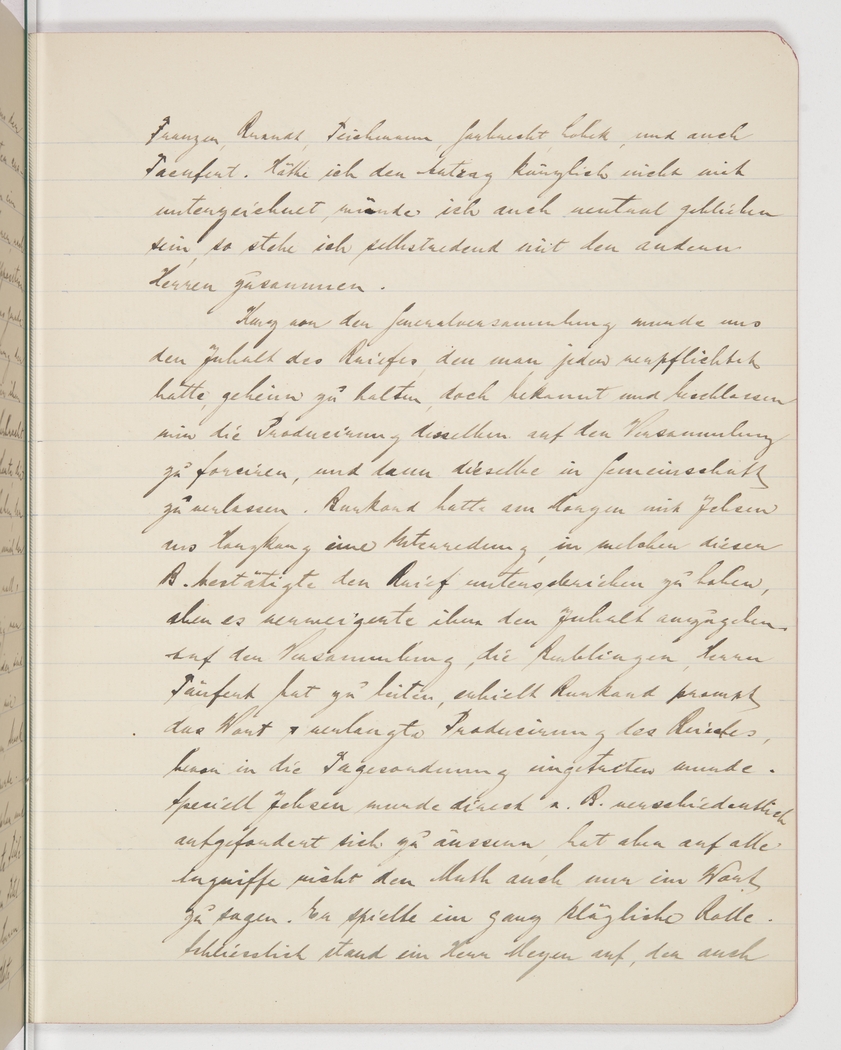 Franzen, Brandt, Teichmann, Garbrecht, Lobek, und auch
Taeufert. Hätte ich den Antrag kürzlich nicht mit
unterzeichnet, würde ich auch neutral geblieben
sein, so stehe ich selbstredend mit den andern
Herren zusammen.
Kurz vor der Generalversammlung wurde uns
den Inhalt des Briefes, den man jeden verpflichtet
hatte, geheim zu halten, doch bekannt und beschlossen
wir die Producirung desselben auf der Versammlung
zu forciren, und dann dieselbe in Gemeinschaft
zu verlassen. Burkard hatte am Morgen mit Jebsen
aus Hongkong eine Unterredung, in welcher dieser
B. bestätigte den Brief unterschrieben zu haben,
aber es verweigerte ihm den Inhalt anzugeben.
Auf der Versammlung, die Herrn
Täufert hat zu leiten, erhielt Burkard prompt
das Wort & verlangte Producirung des Briefes,
bevor in die Tagesordnung eingetreten wurde.
Speciell Jebsen wurde direct v. B. verschiedentlich
aufgefordert sich zu äussern, hat aber auf alle
Angriffe nicht den Muth auch nur ein Wort
zu sagen. Er spielte ein ganz klägliche Rolle.
Schliesslich stand ein Herr Meyer auf, der auch